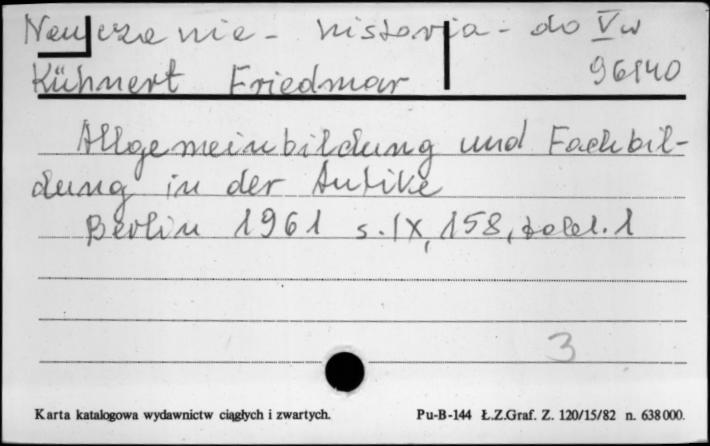 Nauczanie - historia - do V w
Kühnert Friedmar 96140
Allgemeinbildung und Fachbil-
dung in der Antike
Berlin 1961 s. IX, 158, tabl. 1
3
Karta katalogowa wydawnictw ciągłych i zwartych. Pu-B-144 Ł.Z.Graf. Z. 120/15/82 n. 638000.